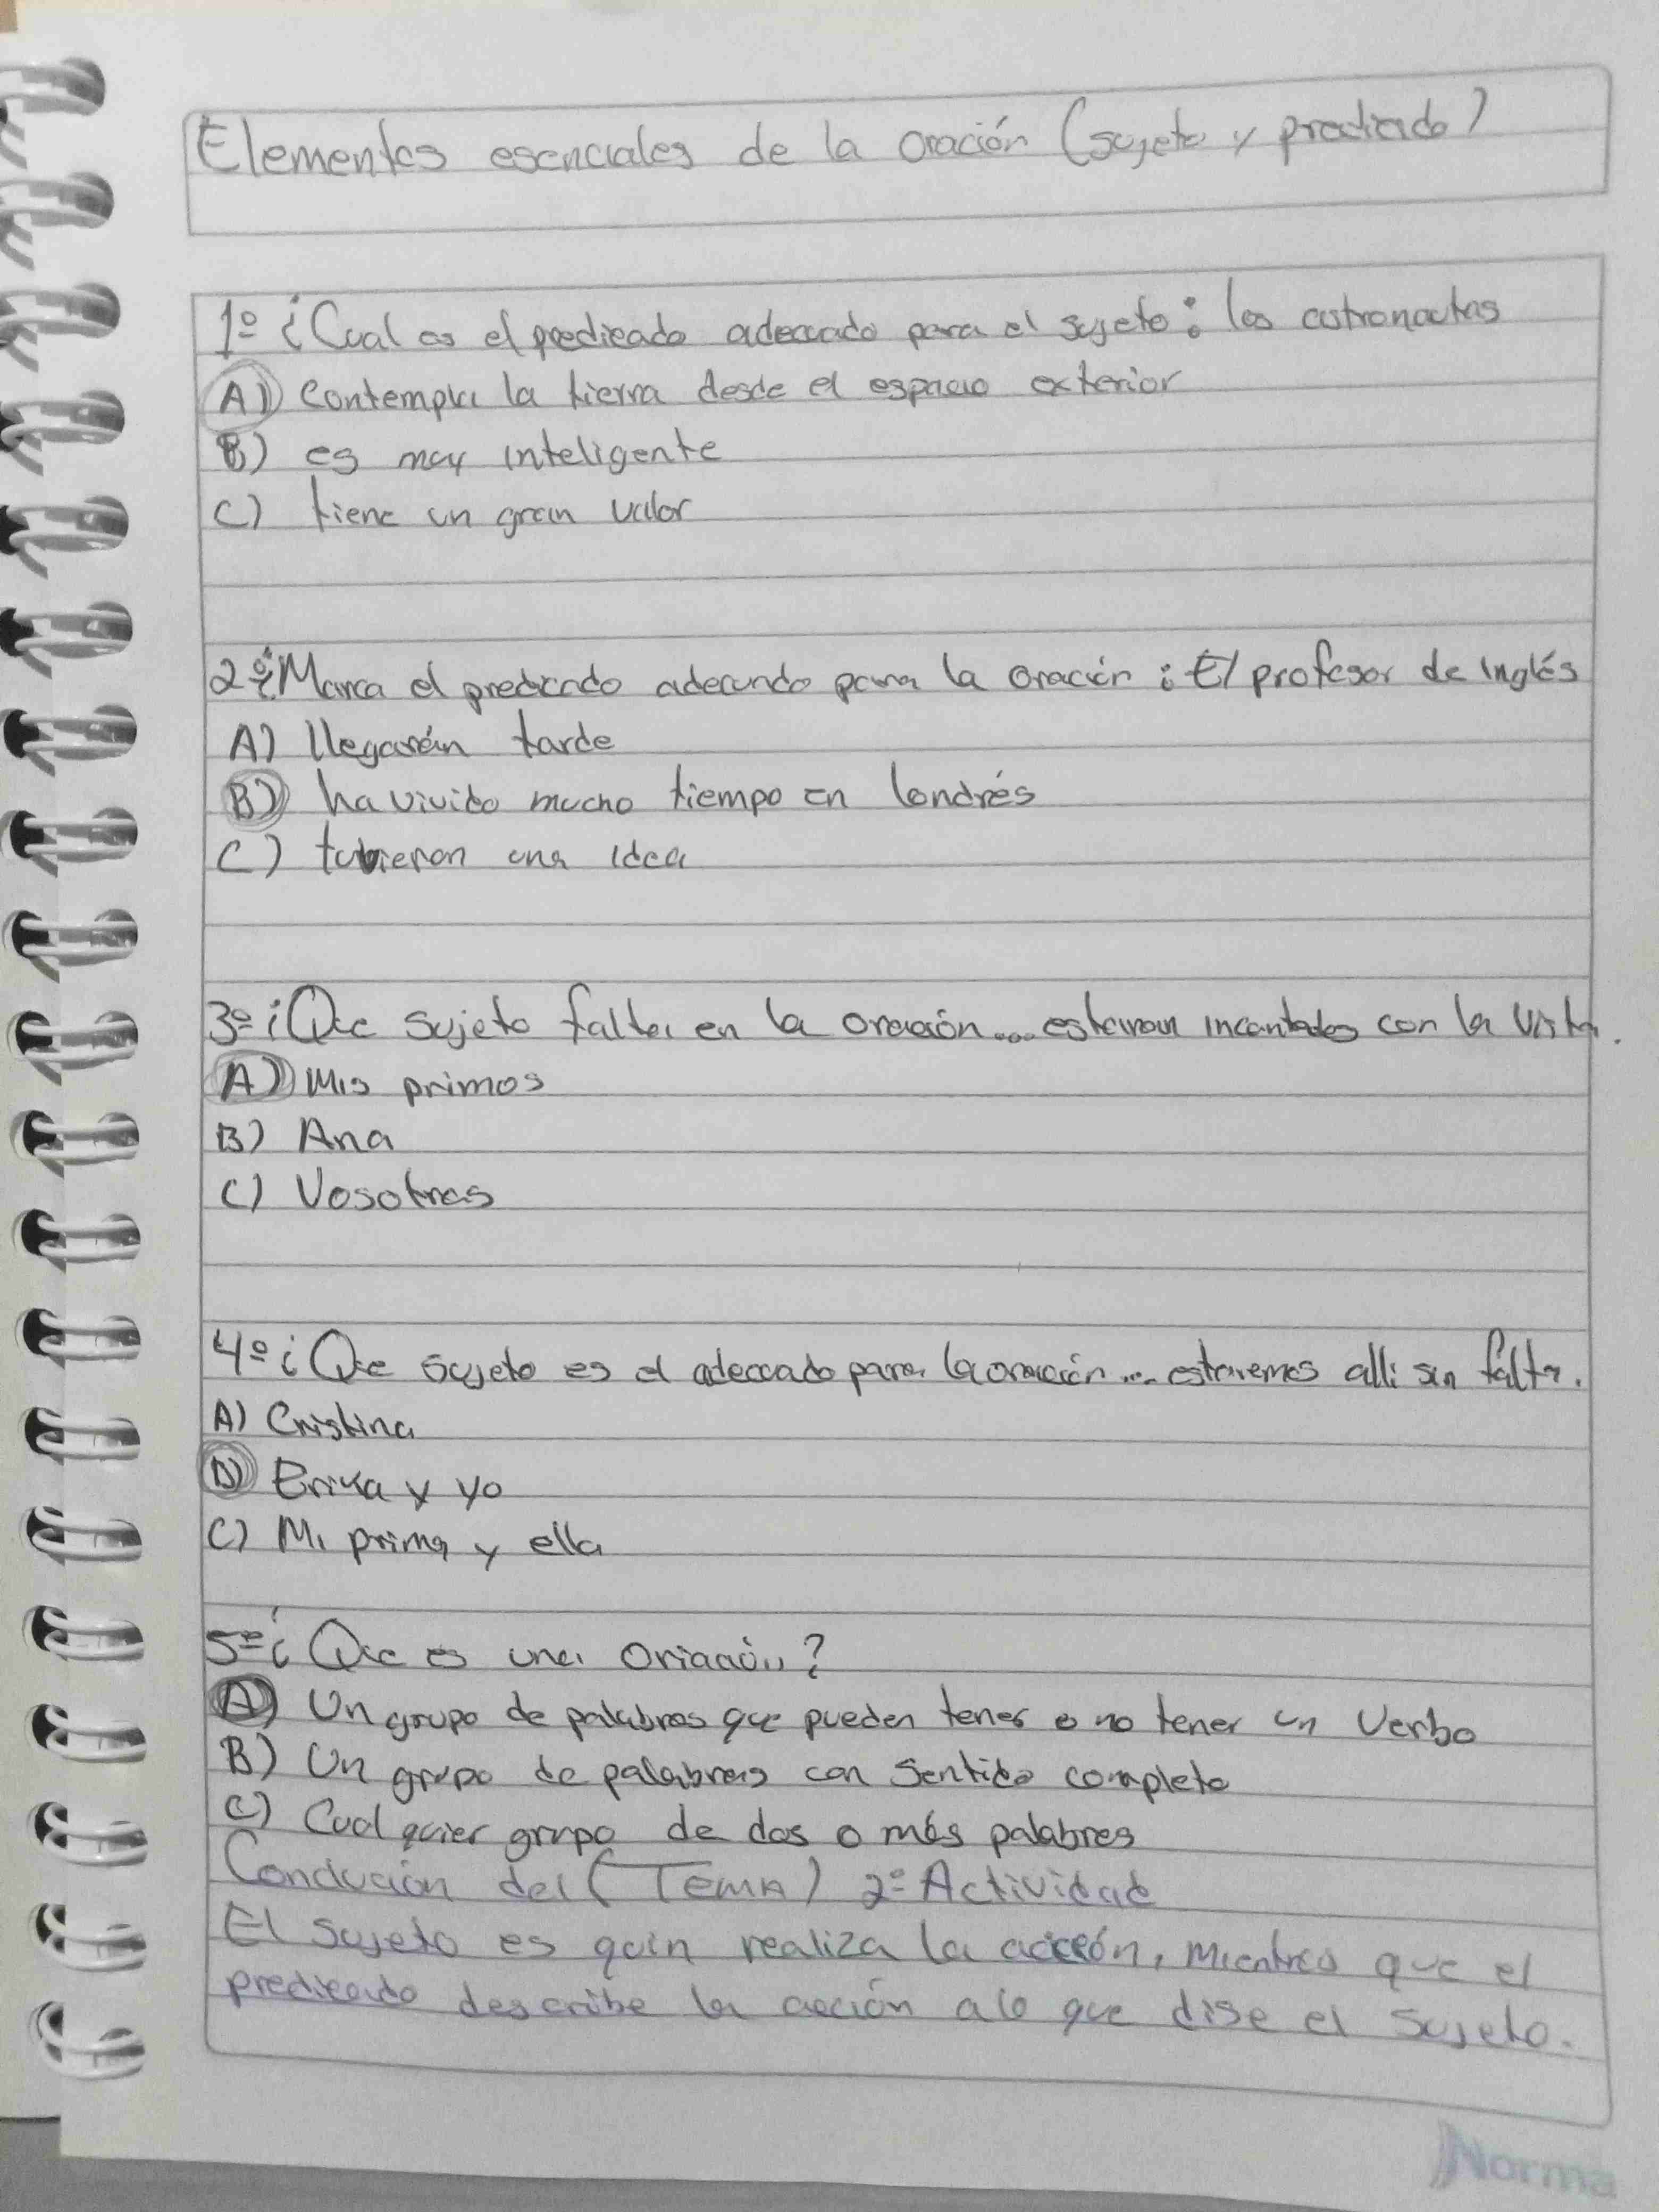 Elementos esenciales de la oración (sujeto y predicado)
1º ¿Cual es el predicado adecuado para el sujeto: los astronautas
A) Contempla la tierra desde el espacio exterior
B) es muy inteligente
C) tiene un gran valor
2º ¿Marca el predicado adecuado para la oración: El profesor de Inglés
A) llegarán tarde
B) ha vivido mucho tiempo en londrés
C) tubieron una idea
3º ¿Que sujeto falta en la oración... estavan incantados con la vista.
A) Mis primos
B) Ana
C) Vosotras
4º ¿Que sujeto es el adecuado para la oración... estaremos alli sin falta.
A) Cristina
B) Erika y yo
C) Mi prima y ella
5º ¿Que es una Oriación?
A) Un grupo de palabras que pueden tener o no tener un Verbo
B) Un grupo de palabras con Sentido completo
C) Cual quier grupo de dos o más palabras
Conclución del (Tema) 2º Actividad
El Sujeto es quin realiza la acción, Mientras que el
predicado describe la acción a lo que dise el Sujeto.
Norma